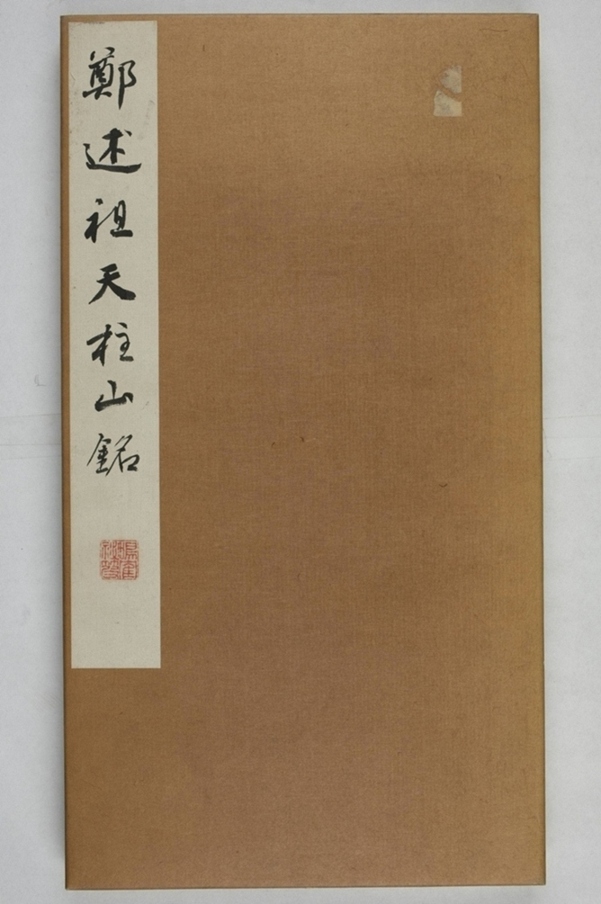 鄭述祖天柱山銘